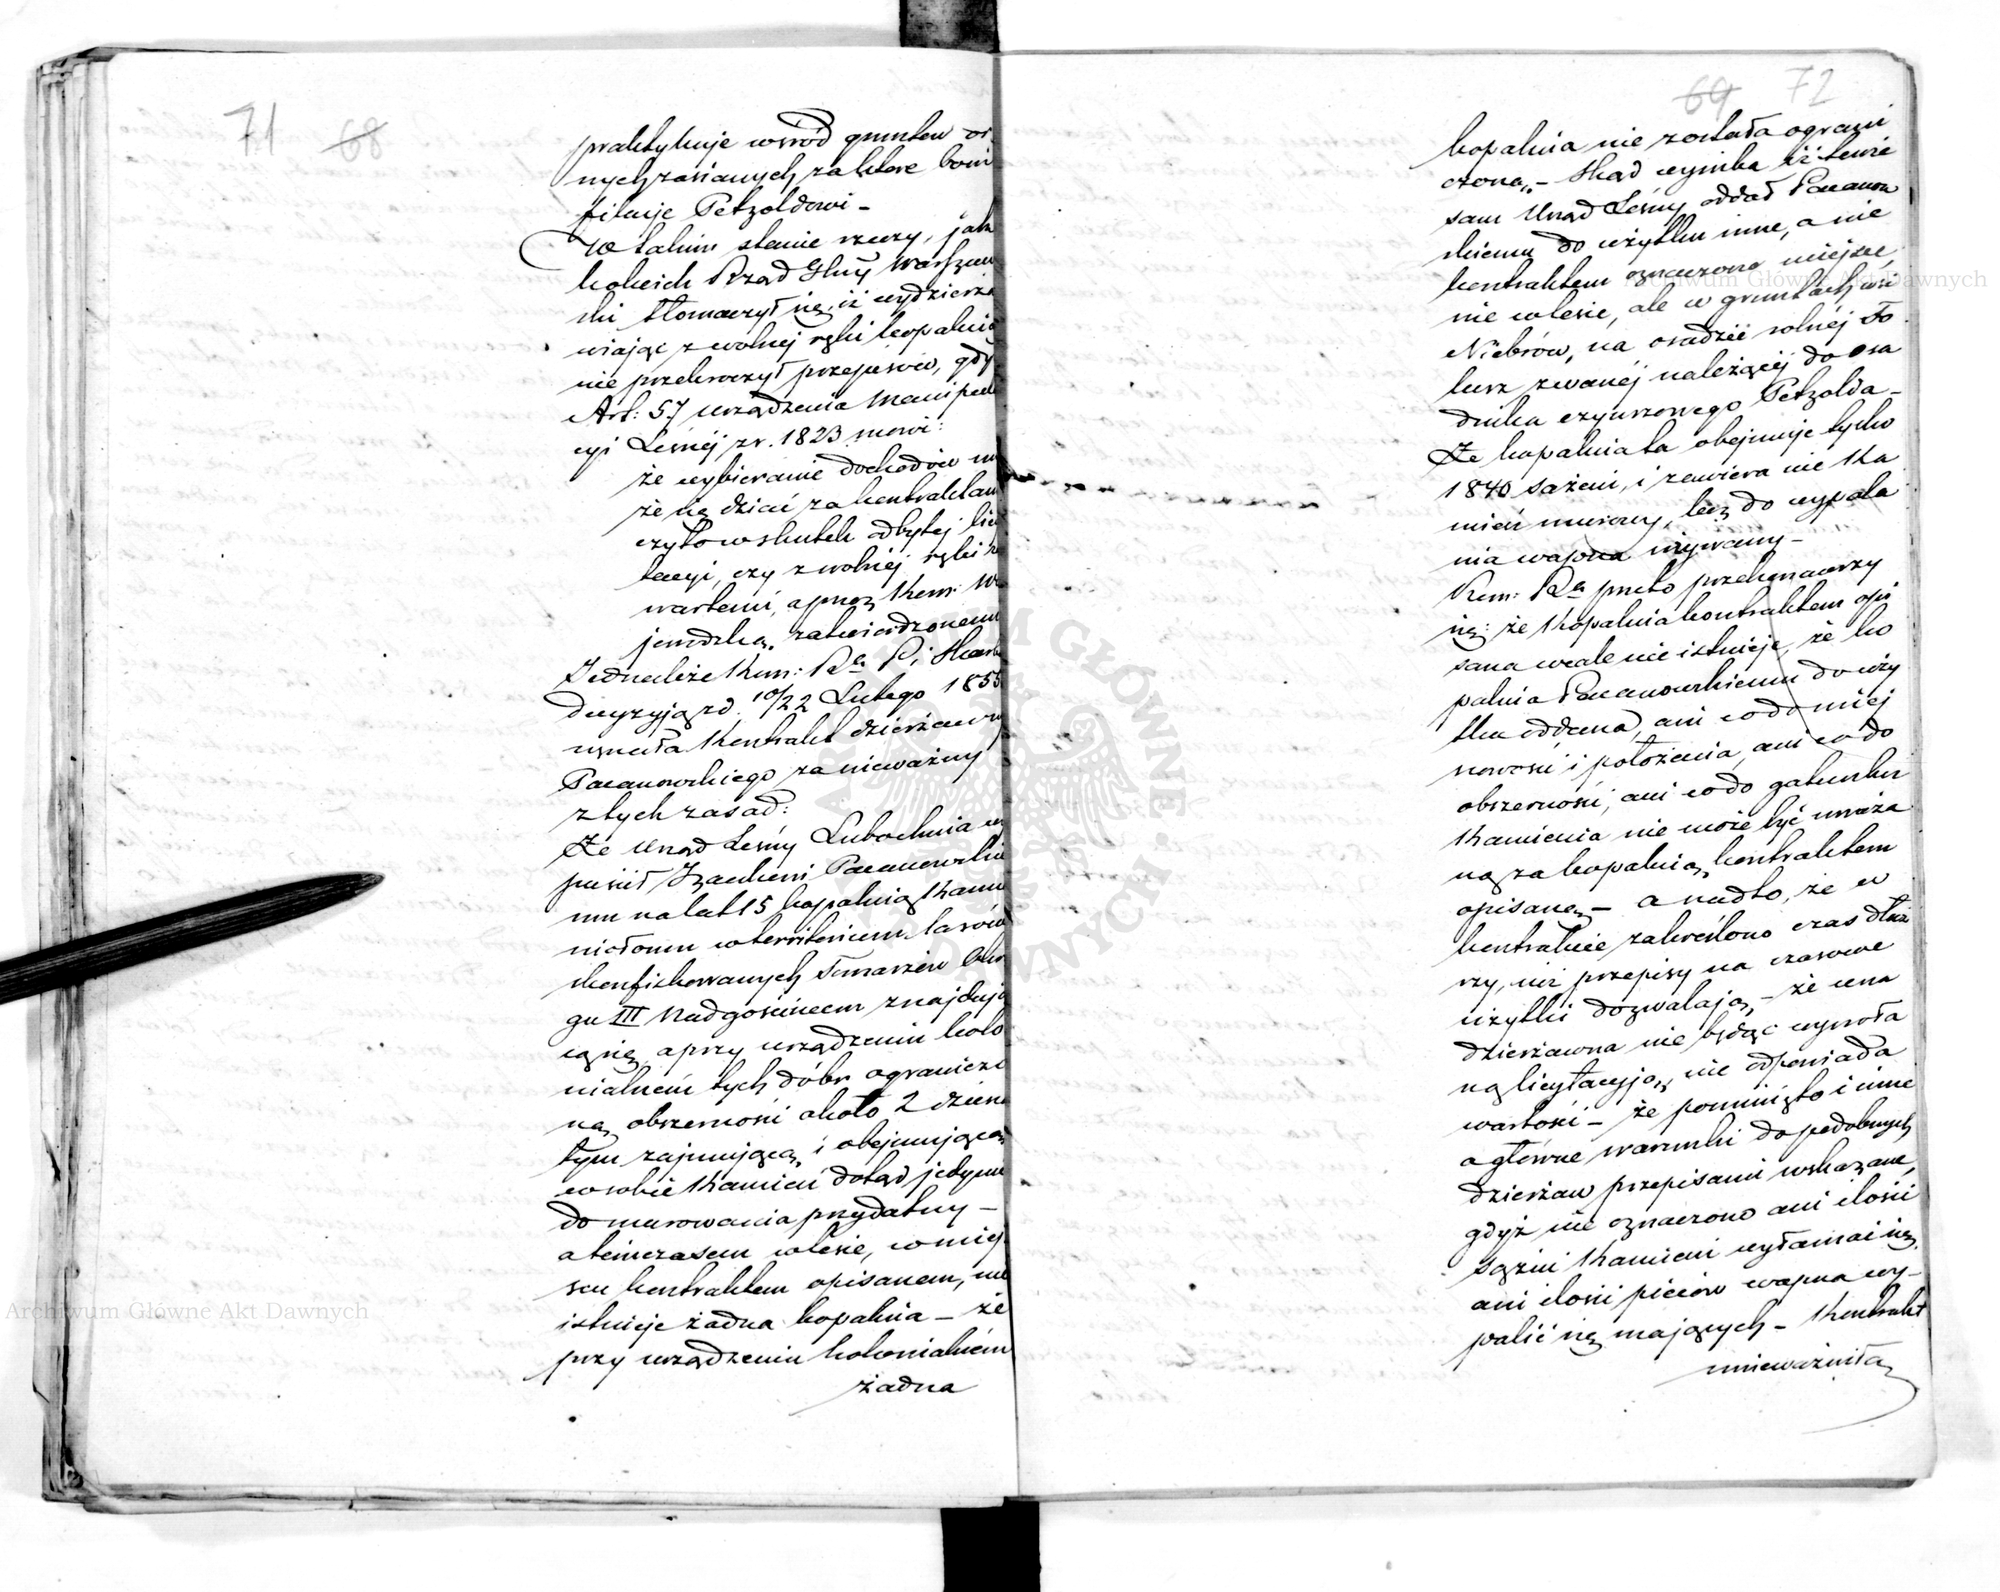 71 68
praktykuje wśród gruntów or
nych zasianych za które boni
fikuje Petzoldowi –
W takim stanie rzeczy, jak
kolwiek Rząd Głuy Warszaw
ski tłomaczył się, iż wydzierża
wiając z wolnej ręki kopalnię
nie przekroczył przepisów, gdy
Art: 57 urządzenia Manipula
cyi Leśnéj z r. 1823 mówi:
że wybieranie dochodów mo
że się dziać za kontraktami
czyto w skutek odbytej licy
tacyi, czy z wolnéj ręki za
wartemi, a przez Kom: Wo
jewodzką, zatwierdzonemi
Jednakże Kom: Rz. P. i Skarbu
decyzyją z d. 10/22 Lutego 1855
uznała Kontrakt dzierżawny
Pacanowskiego za nieważny
z tych zasad:
Że Urząd Leśny Lubochnia wy
puścił Izaakowi Pacanowskie
mu na lat 15 kopalnią Kamie
niołomu w territorium lasów
skonfiskowanych Tomaszów Okrę
gu III Nadgościńcem znajdują
cą się, a przy urządzeniu kolo
nialném tych dóbr ograniczo
ną, obszerności około 2 dziesię
tyn zajmującą, i obejmującą
w sobie Kamień dotąd jedynie
do murowania przydatny –
a tymczasem w lesie, w miej
scu kontraktem opisanem, nie
istnieje żadna kopalnia – że
przy urządzeniu kolonialném
żadna
69 72
kopalnia nie została ograni
czona, – Skąd wynika iż tenże
sam Urząd Leśny oddał Pacanow
skiemu do użytku inne, a nie
kontraktem oznaczone miejsce,
nie w lesie, ale w gruntach wsi
Niebrów, na osadzie rolnéj Fo
lusz zwanéj należącéj do osa
dnika czynszowego Petzolda –
Że kopalnia ta obejmuje tylko
1840 sążeni, i zawiera nie Ka
mień murowy, lecz do wypala
nia wapna używany –
Kom: Rz. przeto przekonawszy
się: że Kopalnia kontraktem opi
sana wcale nie istnieje, że ko
palnia Pacanowskiemu do uży
tku oddana, ani co do miej
scowości i położenia, ani co do
obszerności, ani co do gatunku
Kamienia nie może być uważa
ną za kopalnią, kontraktem
opisaną, – a nadto, że w
kontrakcie zakreślono czas dłuż
szy, niż przepisy na czasowe
użytki dozwalają, – że cena
dzierżawna nie będąc wywoła
ną licytacyją, nie odpowiada
wartości – że pominięto i inne
a główne warunki do podobnych
dzierżaw przepisami wskazane,
gdyż nie oznaczono ani ilości
sążni Kamieni wyłamać się,
ani ilości pieców wapna wy–
palić się mających – Kontrakt
unieważniła,
Archiwum Główne Akt Dawnych
Archiwum Główne Akt Dawnych